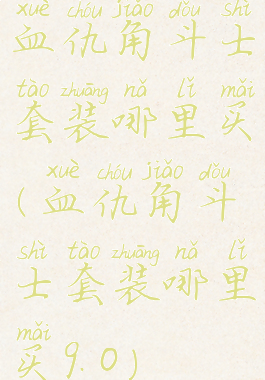 xuè chóu jiǎo dǒu shì
血仇角斗士
tào zhuāng nǎ lǐ mǎi
套装哪里买
xuè chóu jiǎo dǒu
(血仇角斗
shì tào zhuāng nǎ lǐ
士套装哪里
mǎi
买9.0)